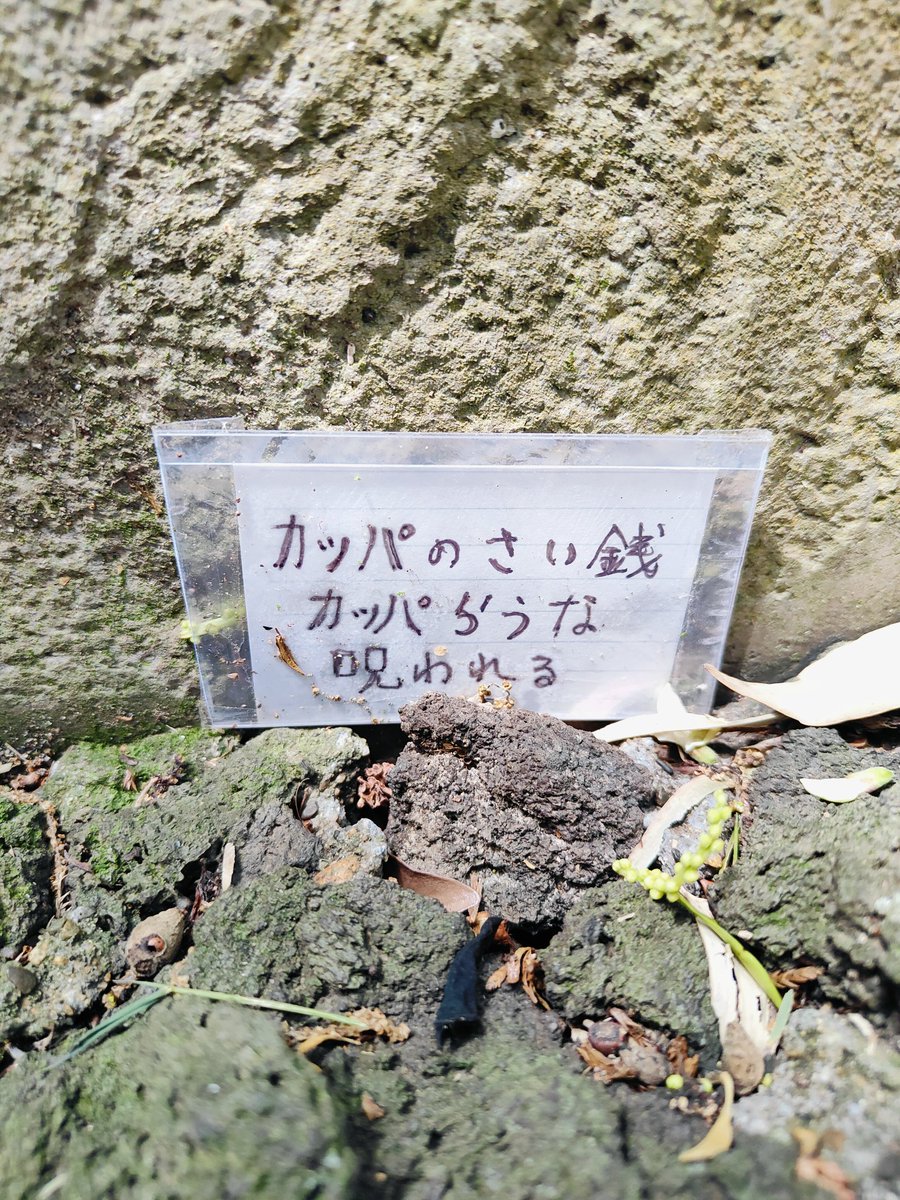 カッパのさい銭
カッパらうな
呪われる